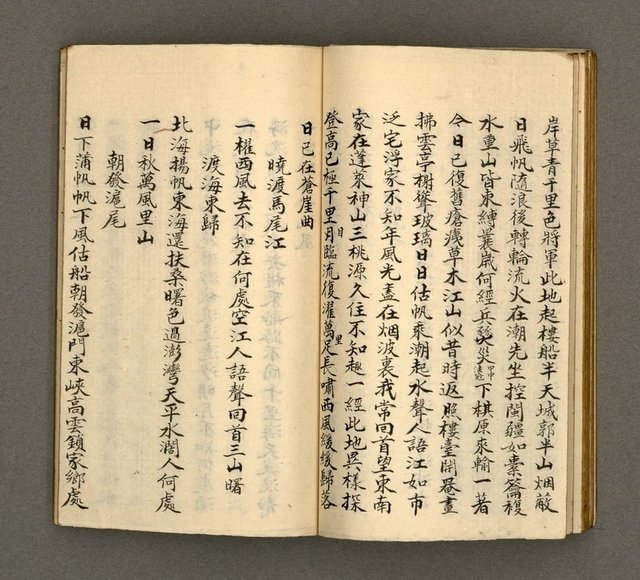 岸草青千里色將軍此地起樓船半天城郭半山烟蔽
日飛帆隨浪後轉輪流火在潮先坐控閩疆如橐籥複
水重山皆束縛曩歲何經兵燹災甲申法逆下棋原來輸一著
今日已復舊瘡痍草木江山似昔時返照樓臺開罨畫
拂雲亭榭聳玻璃日日估帆乘潮起水聲人語江如市
泛宅浮家不知年風光盡在烟波裏我常回首望東南
家在蓬萊神山三桃源久住不知趣一經此地異樣探
登高已極千里目臨流復濯萬里足長嘯西風緩緩歸落
日已在蒼崖曲
曉渡馬尾江
一櫂西風去不知在何處空江人語聲回首三山曙
渡海東歸
北海揚帆東海還扶桑曙色過澎灣天平水濶人何處
一日秋萬風里山
朝發滬尾
日下蒲帆帆下風估船朝發滬門東峽高雲鎖家鄉處